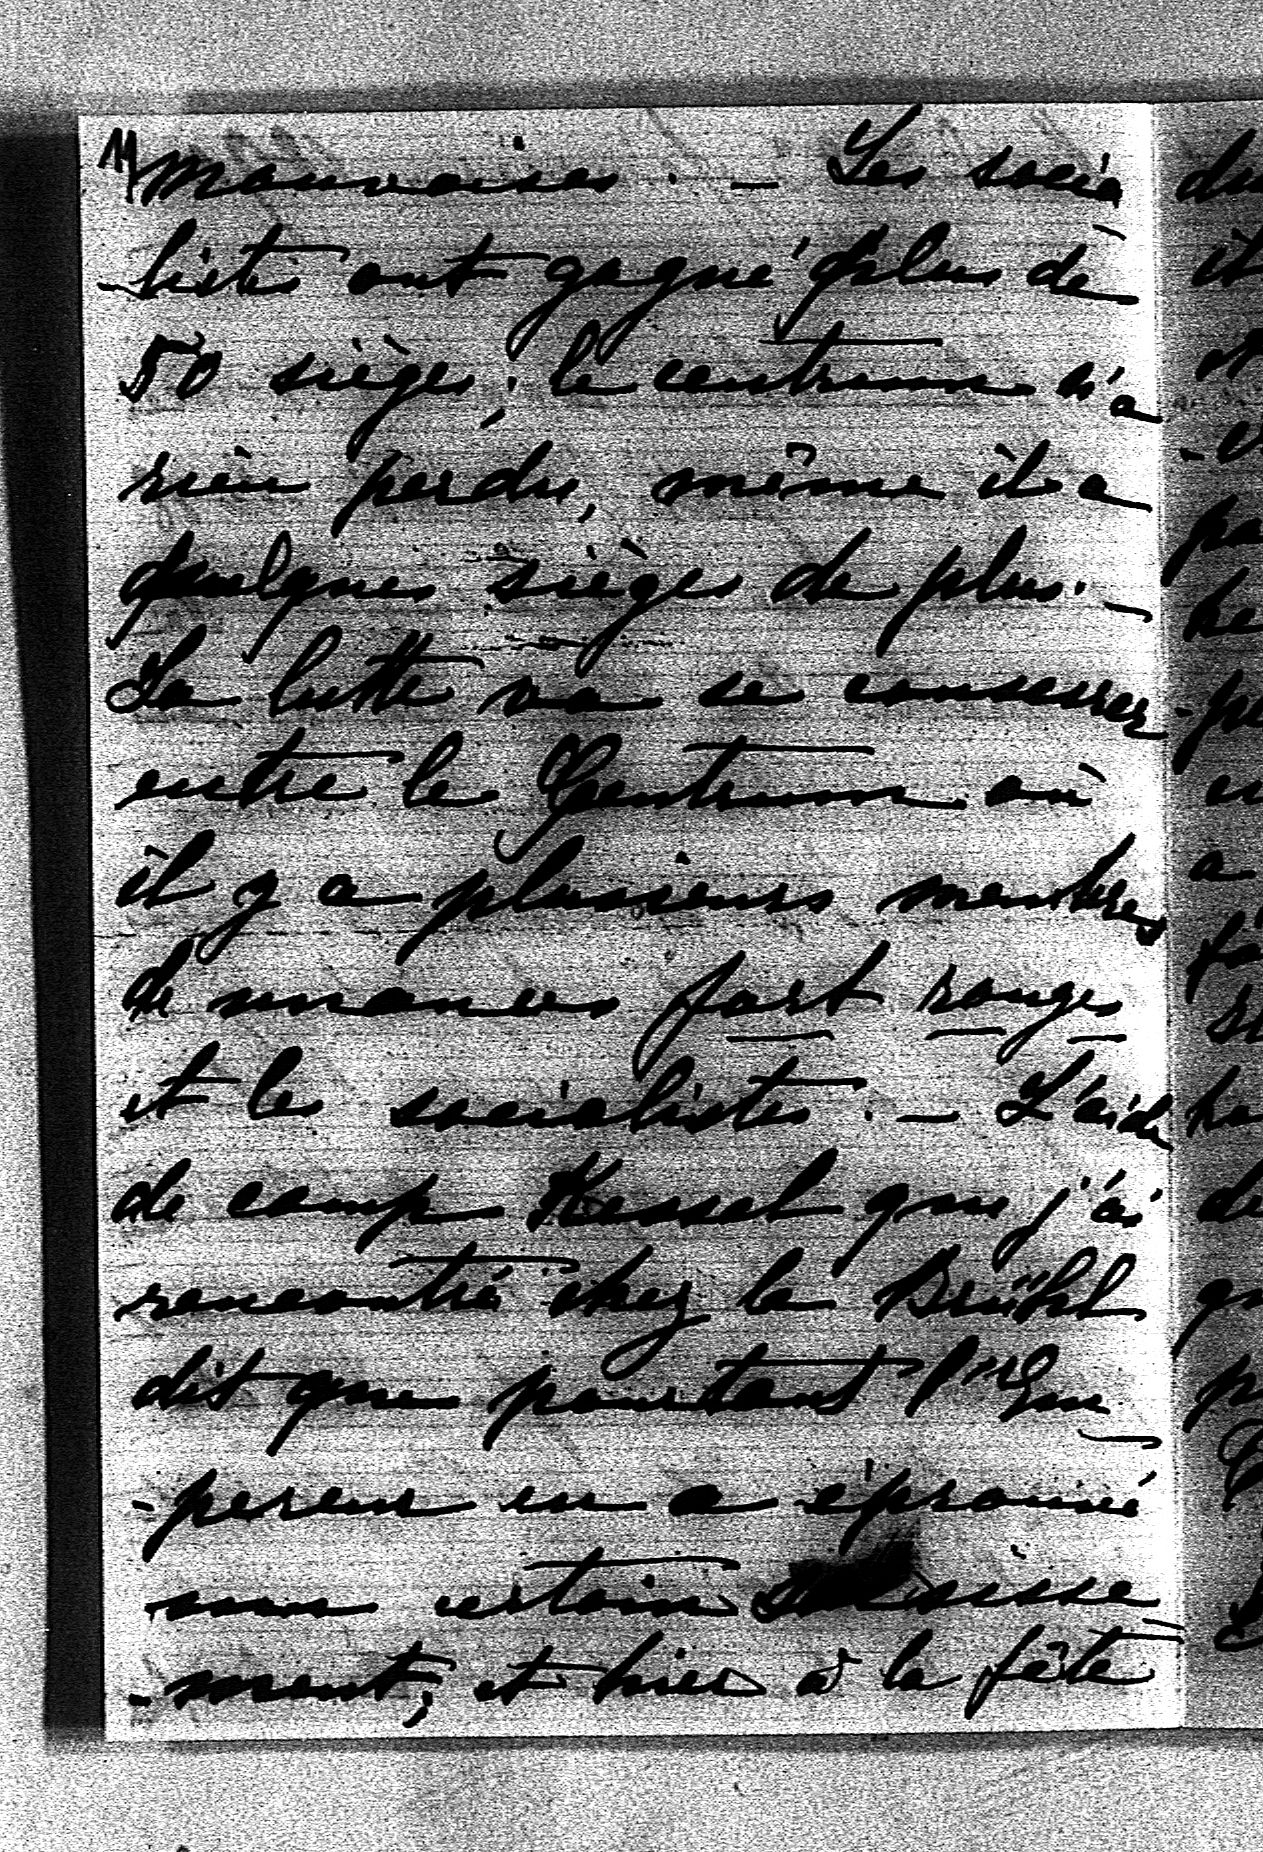 11/ mauvaises. – Les socia
-listes ont gagné plus de
50 sièges, le centrum n'a
rien perdu, même il a
quelques sièges de plus. –
La lutte va se concentrer
entre le Centrum où
il y a plusieurs membres
de nuances fort rouges
et les socialistes. – L'aide
de camp Kessel que j'ai
rencontré chez la Brühl
dit que pourtant l'Em
-pereur en a éprouvé
un certain saisisse
-ment, et hier à la fête